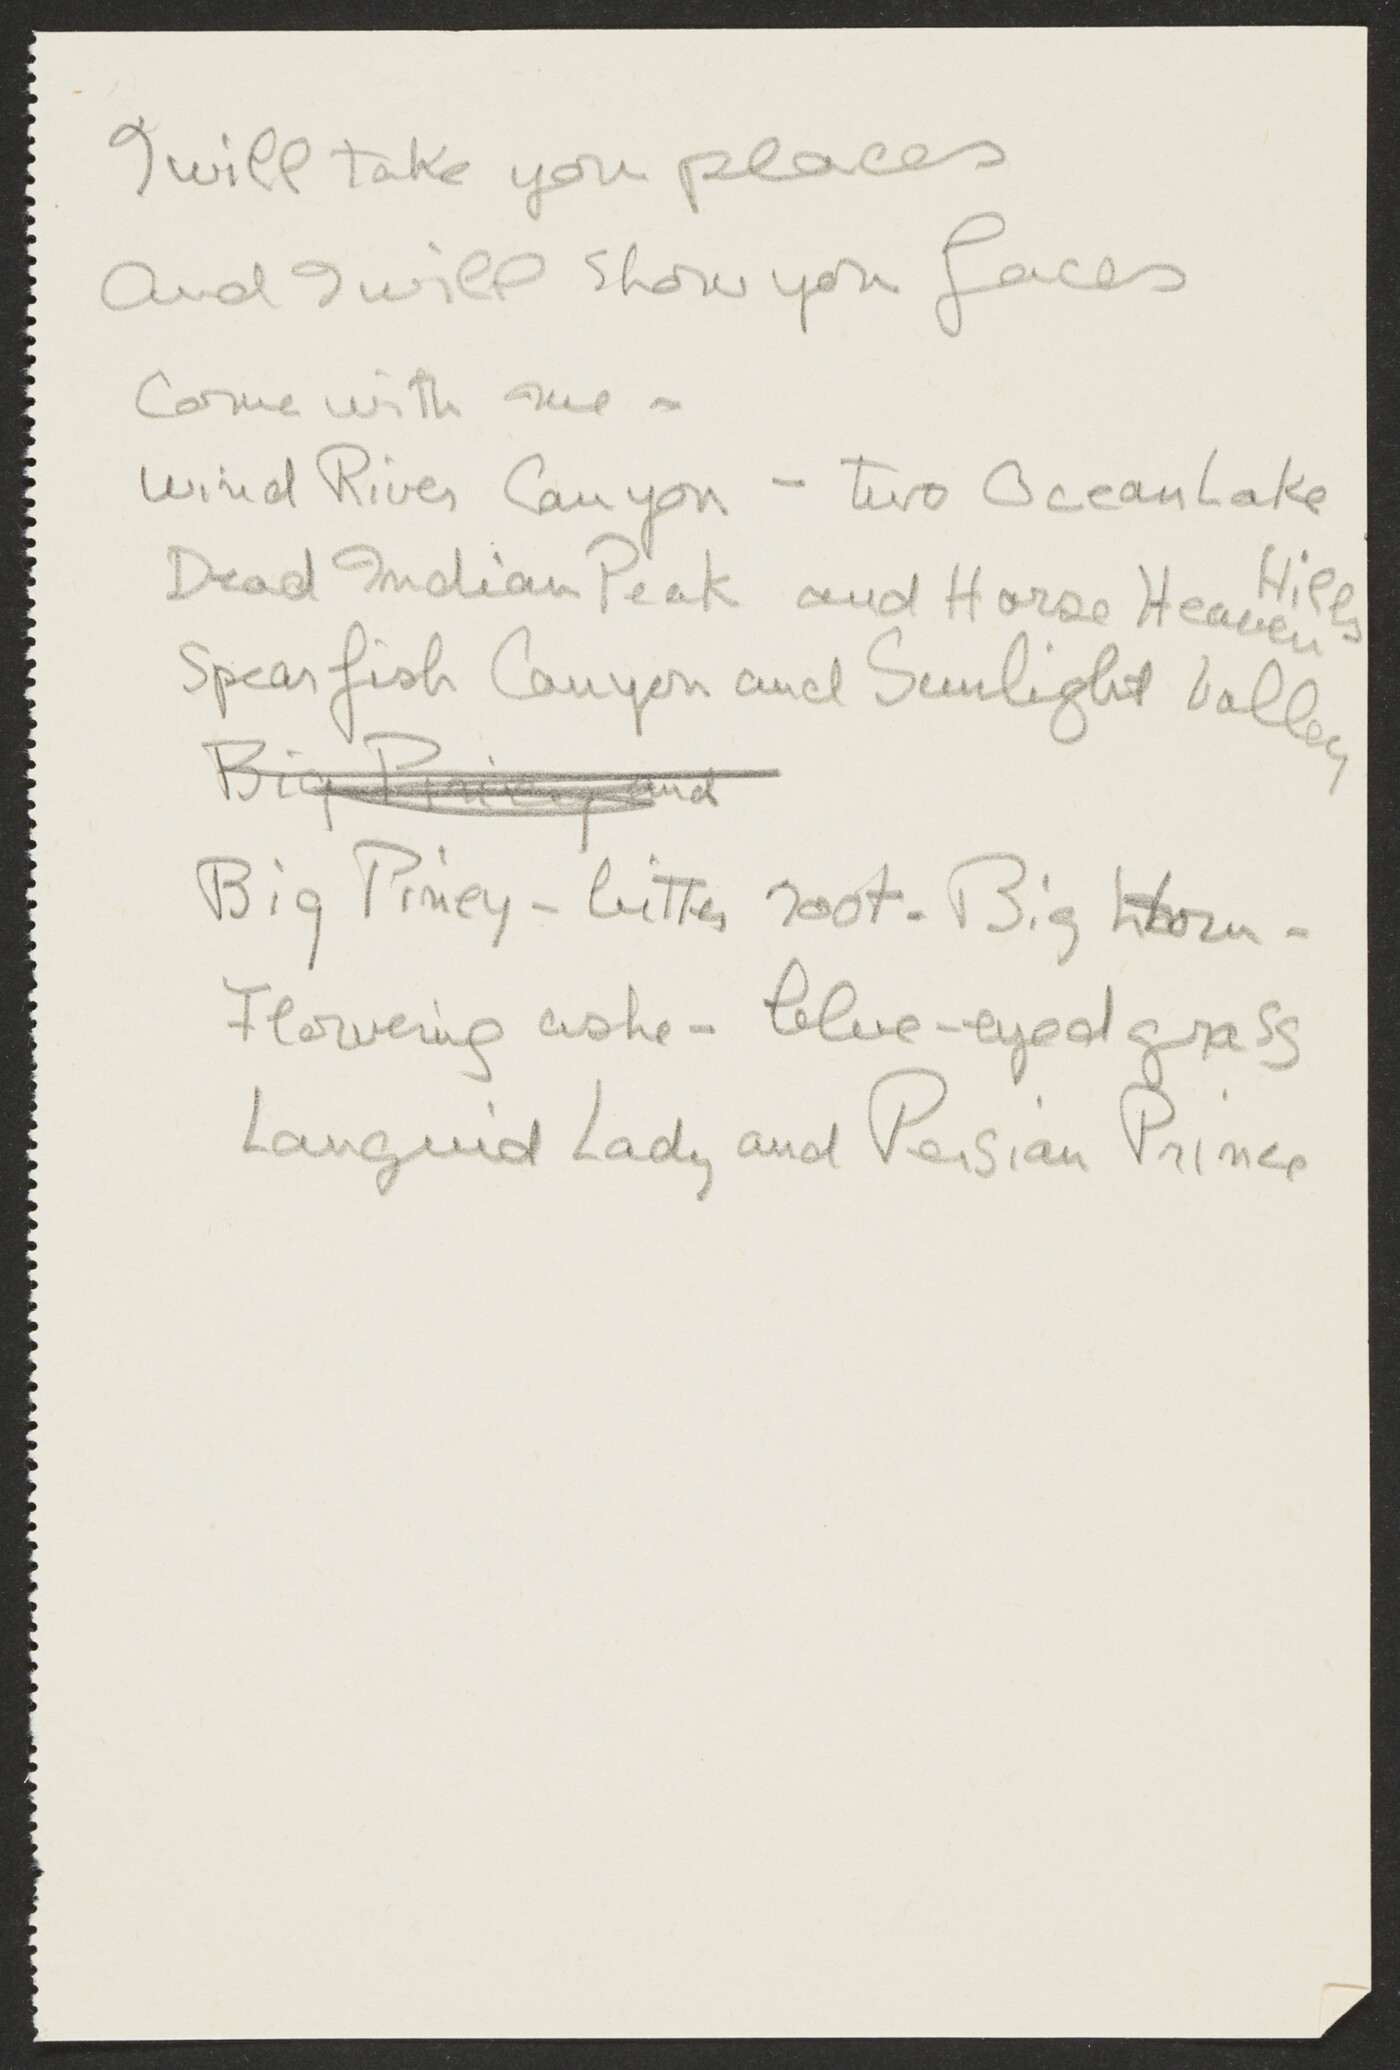 I will take you places
And I will show you faces
Come with me -
Wind River Canyon - Two Ocean Lake
Dead Indian Peak and Horse Heaven Hills
Spearfish Canyon and Sunlight Valley
Big Piney and
Big Piney - bitter root - Big horn -
Flowering ashe - blue-eyed grass
Languid Lady and Persian Prince